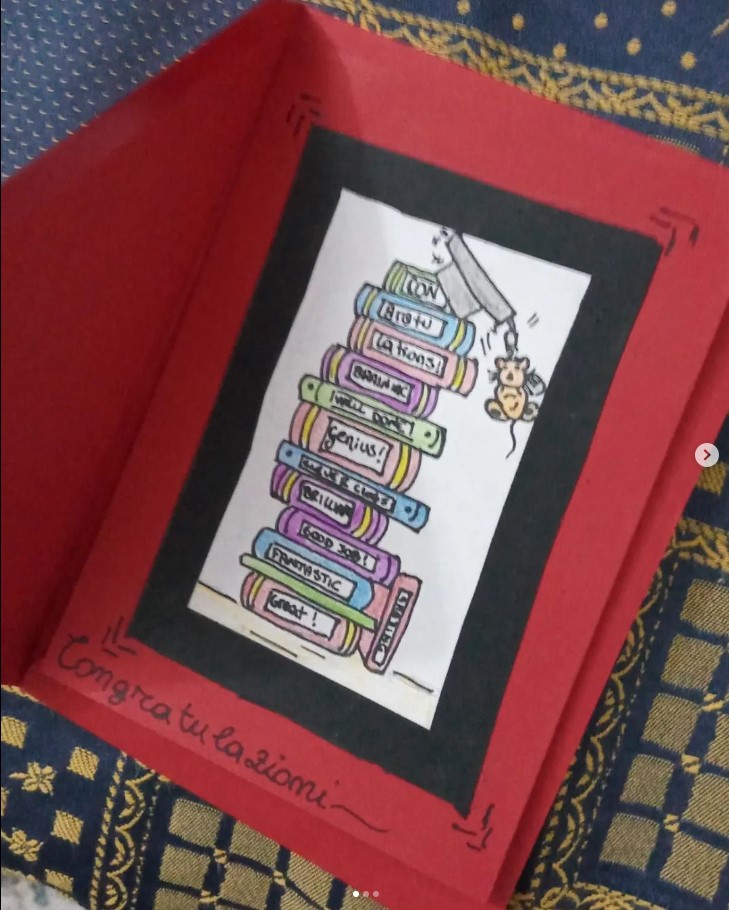 CON
Gratu
lations!
WELL DONE!
Genius!
BRILLIANT
GOOD JOB!
FANTASTIC
Great!
Congratulazioni